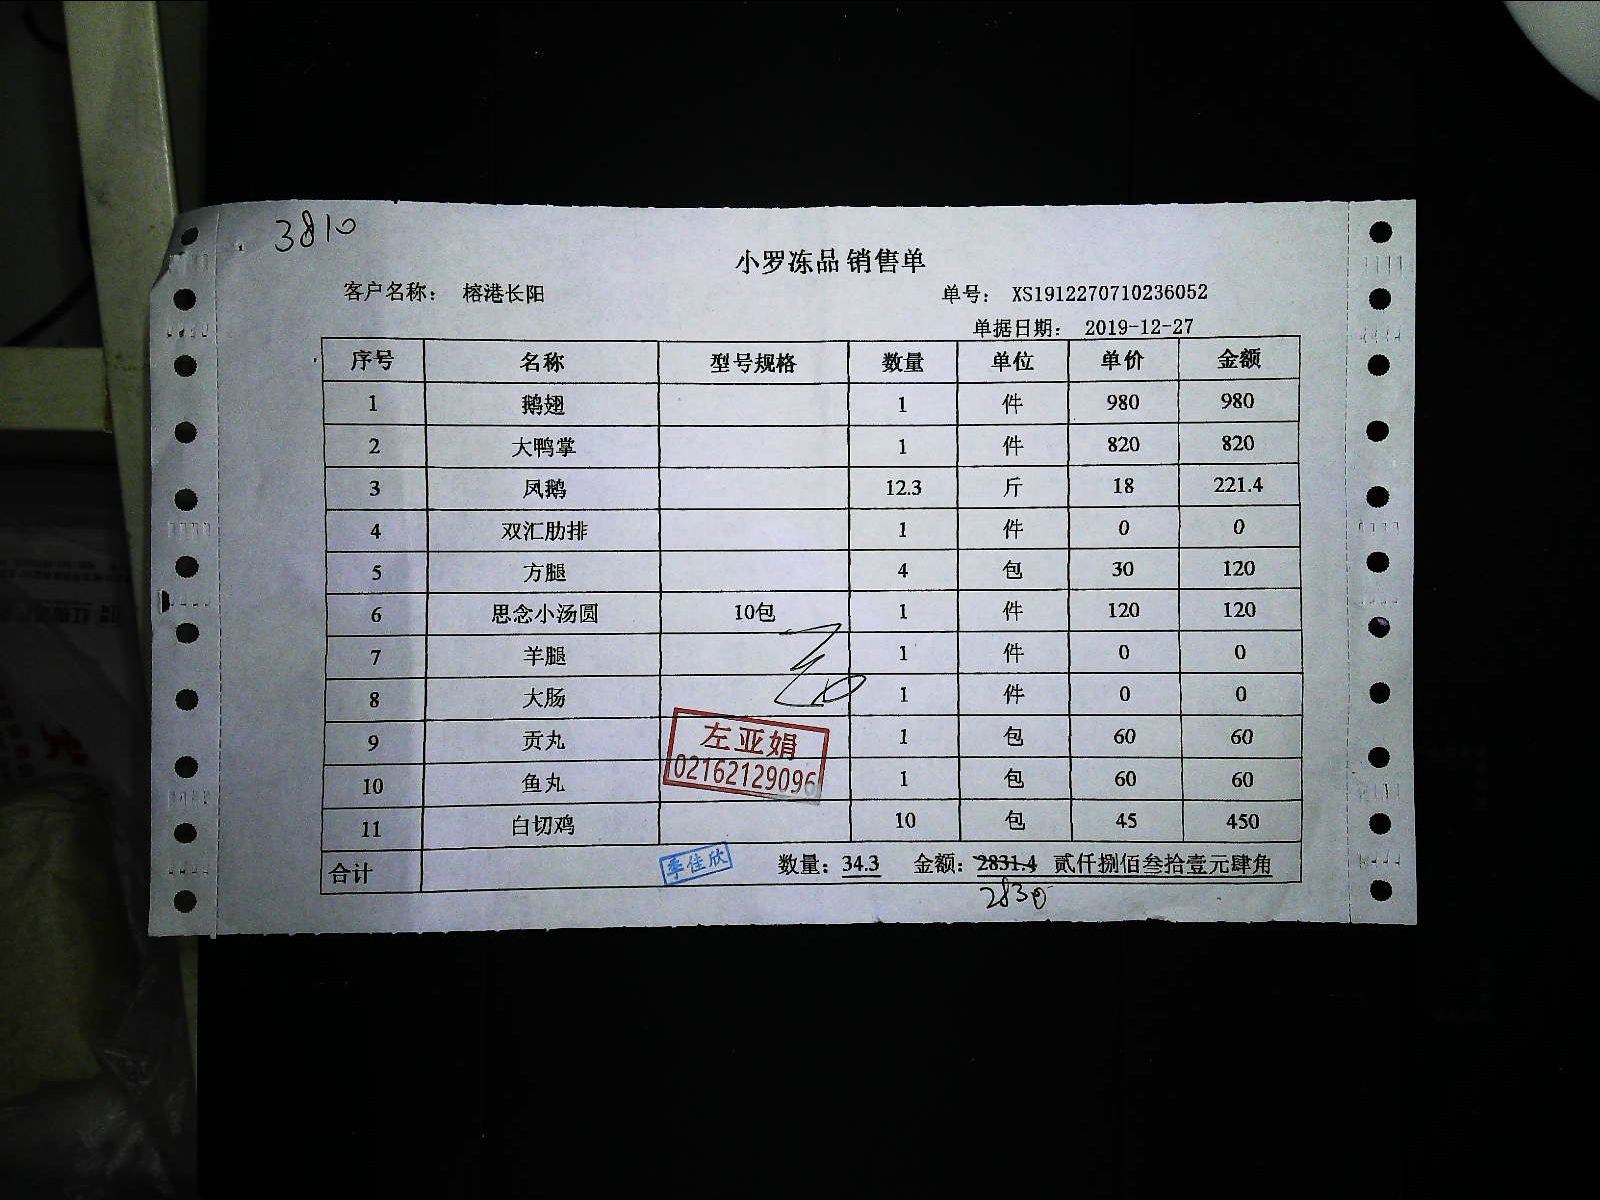 3810
小罗冻品 销售单
客户名称： 榕港长阳 单号： XS1912270710236052
单据日期： 2019-12-27
序号 名称 型号规格 数量 单位 单价 金额
1 鹅翅 1 件 980 980
2 大鸭掌 1 件 820 820
3 凤鹅 12.3 斤 18 221.4
4 双汇肋排 1 件 0 0
5 方腿 4 包 30 120
6 思念小汤圆 10包 1 件 120 120
7 羊腿 1 件 0 0
8 大肠 1 件 0 0
9 贡丸 1 包 60 60
10 鱼丸 1 包 60 60
11 白切鸡 10 包 45 450
左亚娟
02162129096
合计 季佳欣 数量：34.3 金额：2831.4 贰仟捌佰叁拾壹元肆角
2830